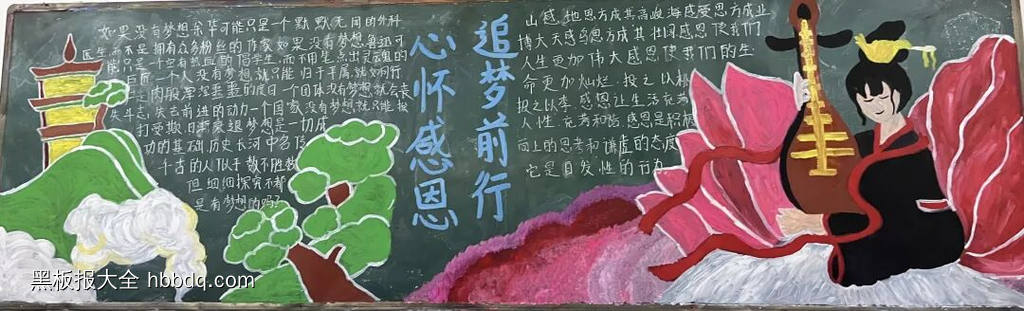 追梦前行
心怀感恩
如果没有梦想余华可能只是一个默默无闻的外科
医生而不是拥有众多粉丝的作家如果没有梦想鲁迅可
能只是一个空有热血的医学生而不用笔点出灵魂的
巨匠一个人没有梦想就只能归于平庸就如同行
肉般浑浑噩噩的度日一个团体没有梦想就会丧
失斗志失去前进的动力一个国家没有梦想就只能报
打受欺日渐衰退梦想是一切成
功的基础历史长河中名传
千古的人似乎数不胜数
但细细探究不都
是有梦想的吗?
山感地恩方成其高峻海感爱恩方成业
博大天感鸟恩方成其壮阔感恩使我们
人生更加伟大感恩使我们的生
命更加灿烂投之以桃
报之以李感恩让生活充满
人性充满和谐感恩是积极
向上的思考和谦虚的态度
它是自发性的行为
黑板报大全 hbbdq.com